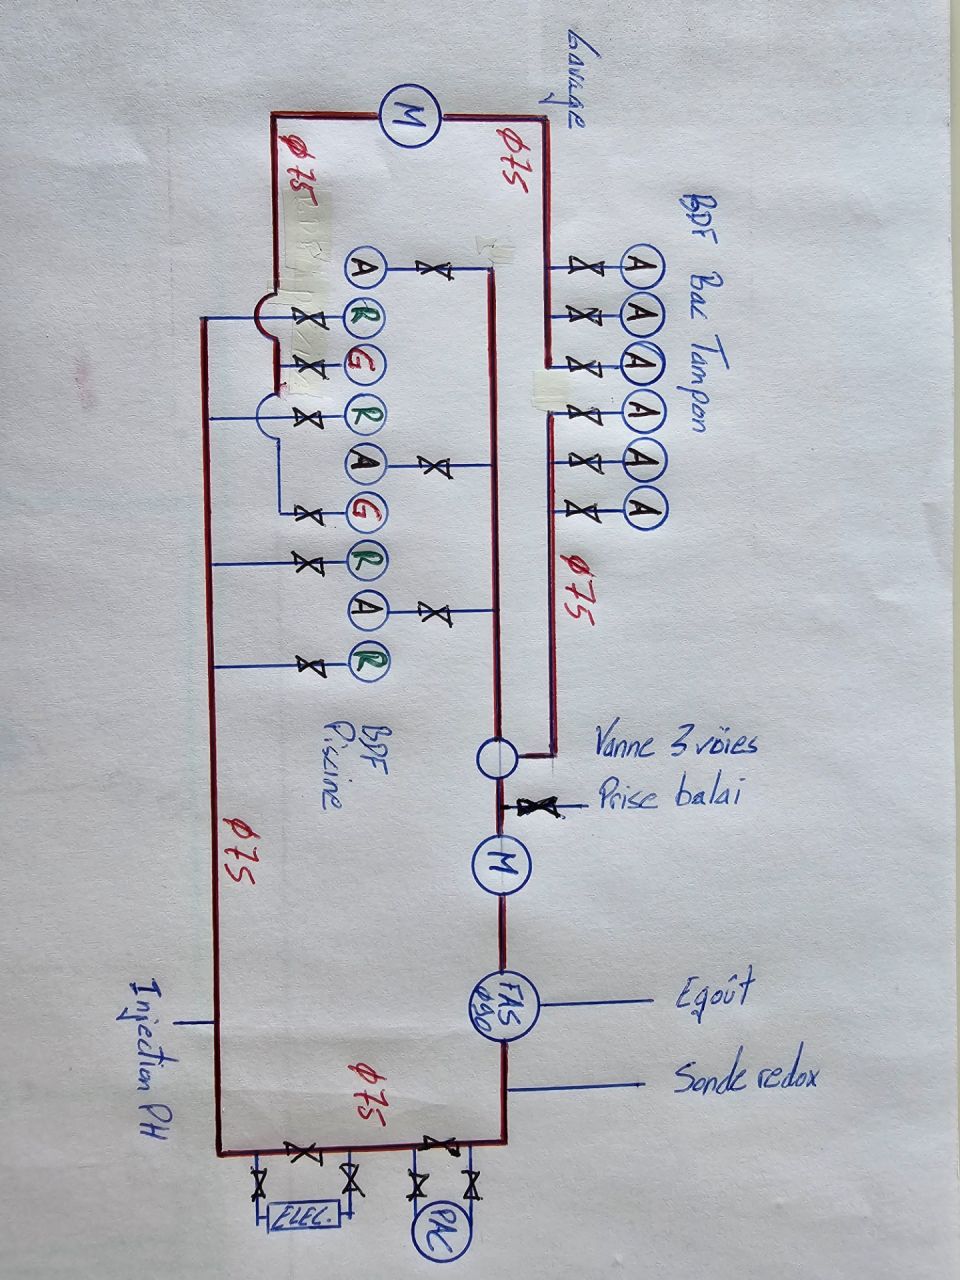 Lavage
M
ø75
ø75
BDF Bac Tampon
A
A
A
A
A
A
A
R
G
R
A
G
R
A
R
ø75
BDF
Piscine
Vanne 3 voïes
Prise balai
M
ø75
FAS
ø90
Egoût
Sonde redox
Injection PH
ø75
ELEC.
PAC